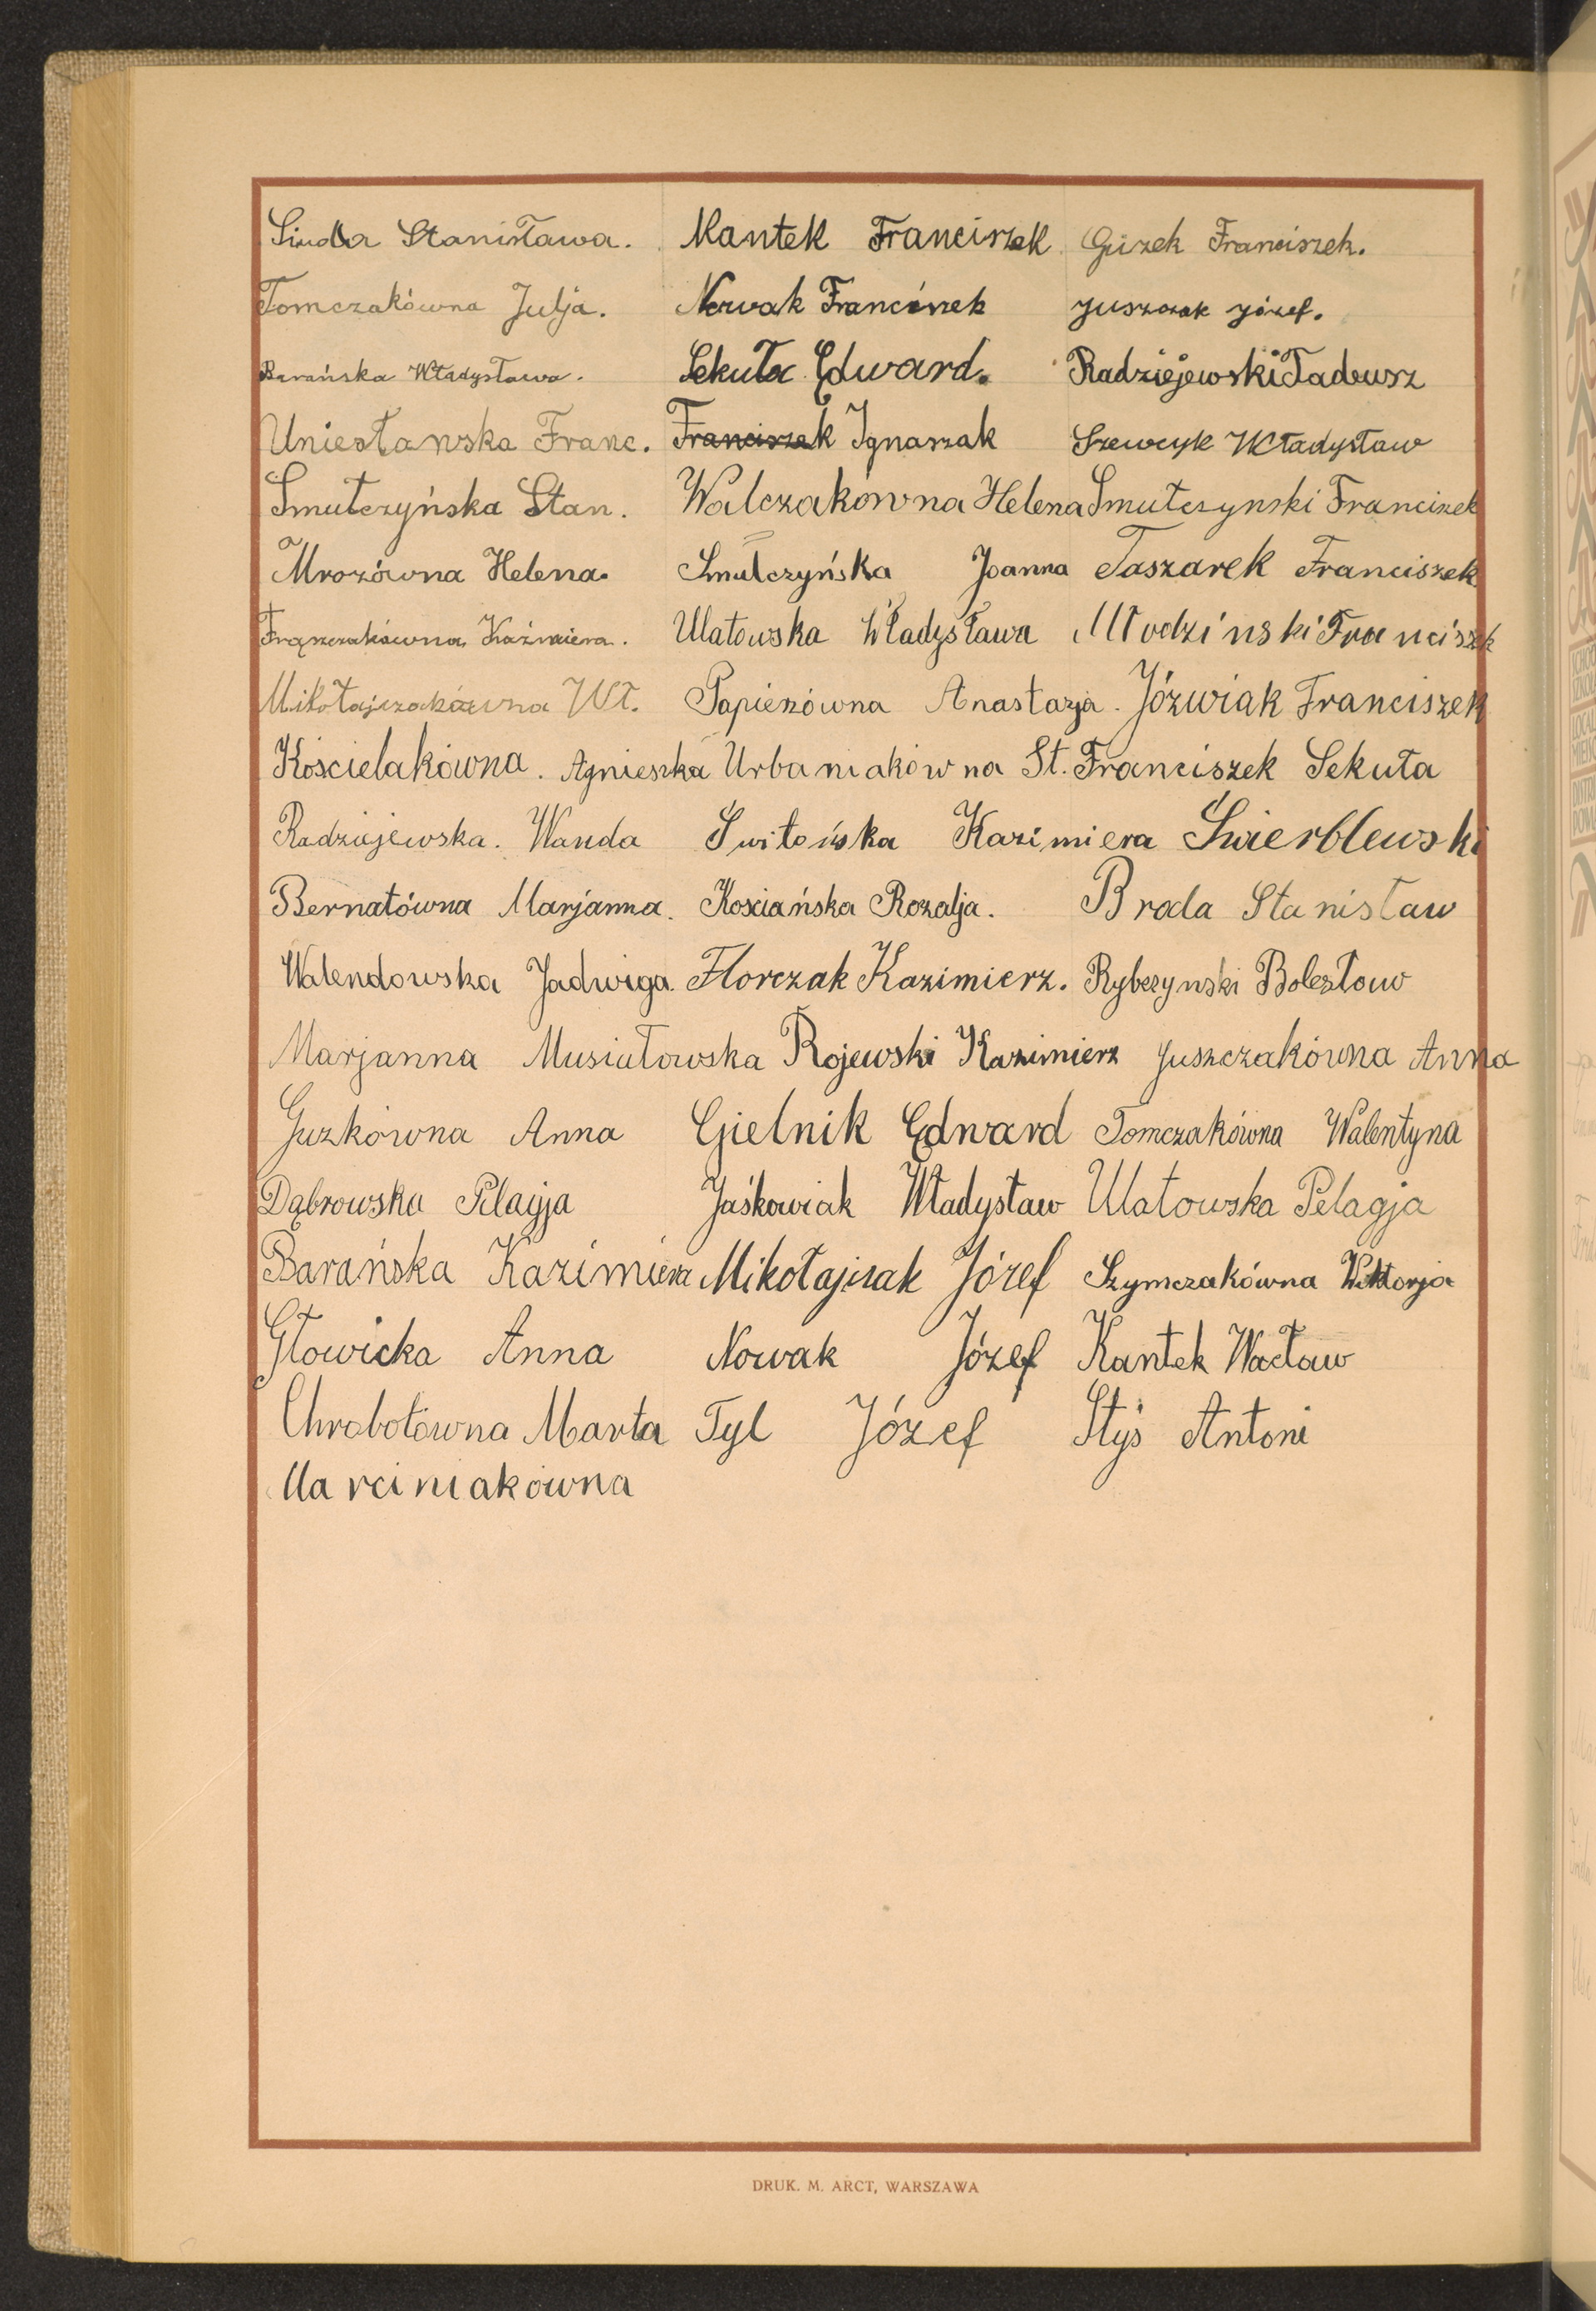 Siuda Stanisława. Kantek Franciszek Guzek Franciszek.
Tomczakówna Julja. Nowak Franciszek Juszczak Józef.
Barańska Władysława. Sekuła Edward. Radziejewski Tadeusz
Uniesławska Franc. Franciszek Ignaszak Szewcyk Władysław
Smułczyńska Stan. Walczakówna Helena Smułczynski Franciszek
Mrozówna Helena. Smulczyńska Joanna Taszarek Franciszek
Frąszczakówna Kaźmiera. Ulatowska Władysława Młodziński Franciszek
Mikołajczakówna Wł. Papieżówna Anastazja. Józwiak Franciszek
Kościelakówna. Agnieszka Urbaniakówna St. Franciszek Sekuła
Radziejewska. Wanda Świtońska Kazimiera Świerblewski
Bernatówna Marjanna. Kosciańska Rozalja. Broda Stanisław
Walendowska Jadwiga. Florczak Kazimierz. Rybczynski Bolesław
Marjanna Musiałowska Rojewski Kazimierz Juszczakówna Anna
Guzkówna Anna Gielnik Edward Tomczakówna Walentyna
Dąbrowska Pelagja Jaśkowiak Władysław Ulatowska Pelagja
Barańska Kazimiera Mikołajczak Józef Szymczakówna Wiktorja
Głowicka Anna Nowak Józef Kantek Wacław
Chrobotówna Marta Tyl Józef Styś Antoni
Marciniakówna
DRUK. M. ARCT, WARSZAWA